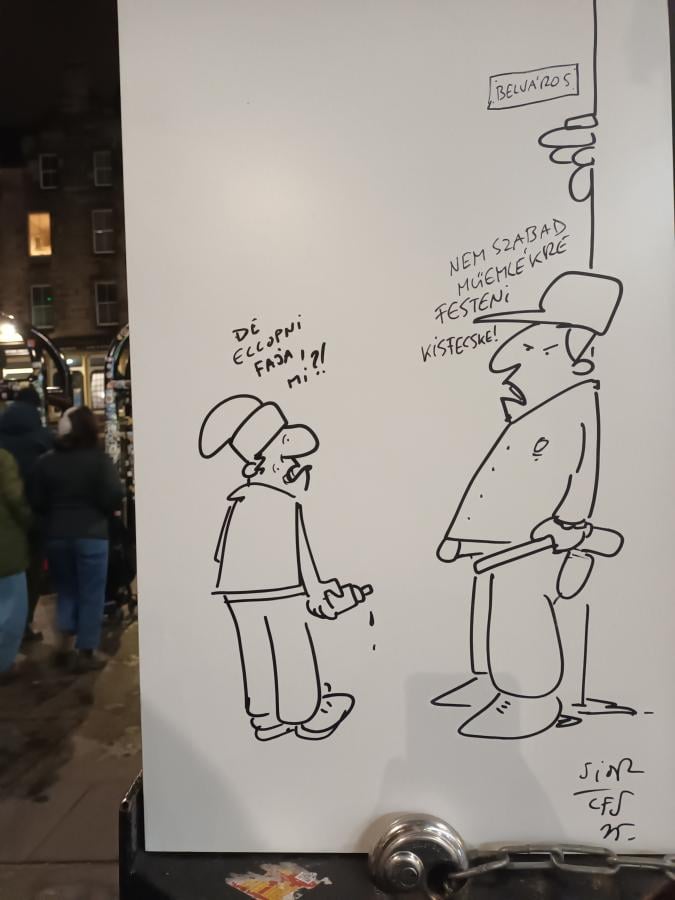 BELVÁROS
NEM SZABAD
MŰEMLÉKRE
FESTENI
KISFECSKE!
DE
ELLOPNI
FASA,
MI?!
CFS